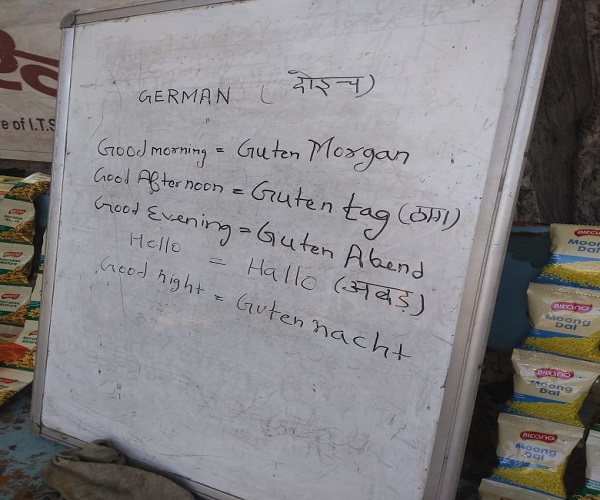 e of I.T.S
GERMAN (दोइच)
Good morning = Guten Morgan
Good Afternoon = Guten tag (ठाग)
Good Evening = Guten Abend
Hello = Hallo (अबड़)
Good night = Guten nacht
BIKANO
Moong Dal
BIKANO
Moong Dal
BIKANO
Moong Dal
BIKANO
Moong Dal